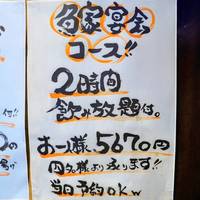 宴会
コース!!
2時間
飲み放題付。
お一人様、5670円
四名様より承ります!!
当日予約okw
付!!
の